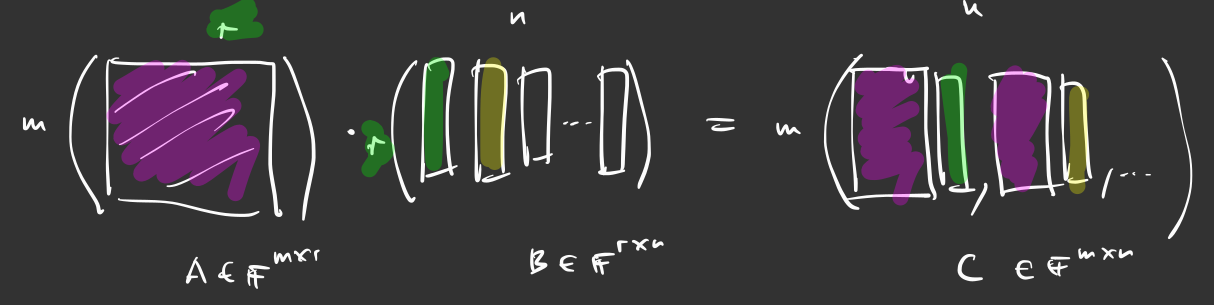 r n n
m ( ) · r ( ... ) = m ( , , ... )
A ∈ F^{m×r} B ∈ F^{r×n} C ∈ F^{m×n}